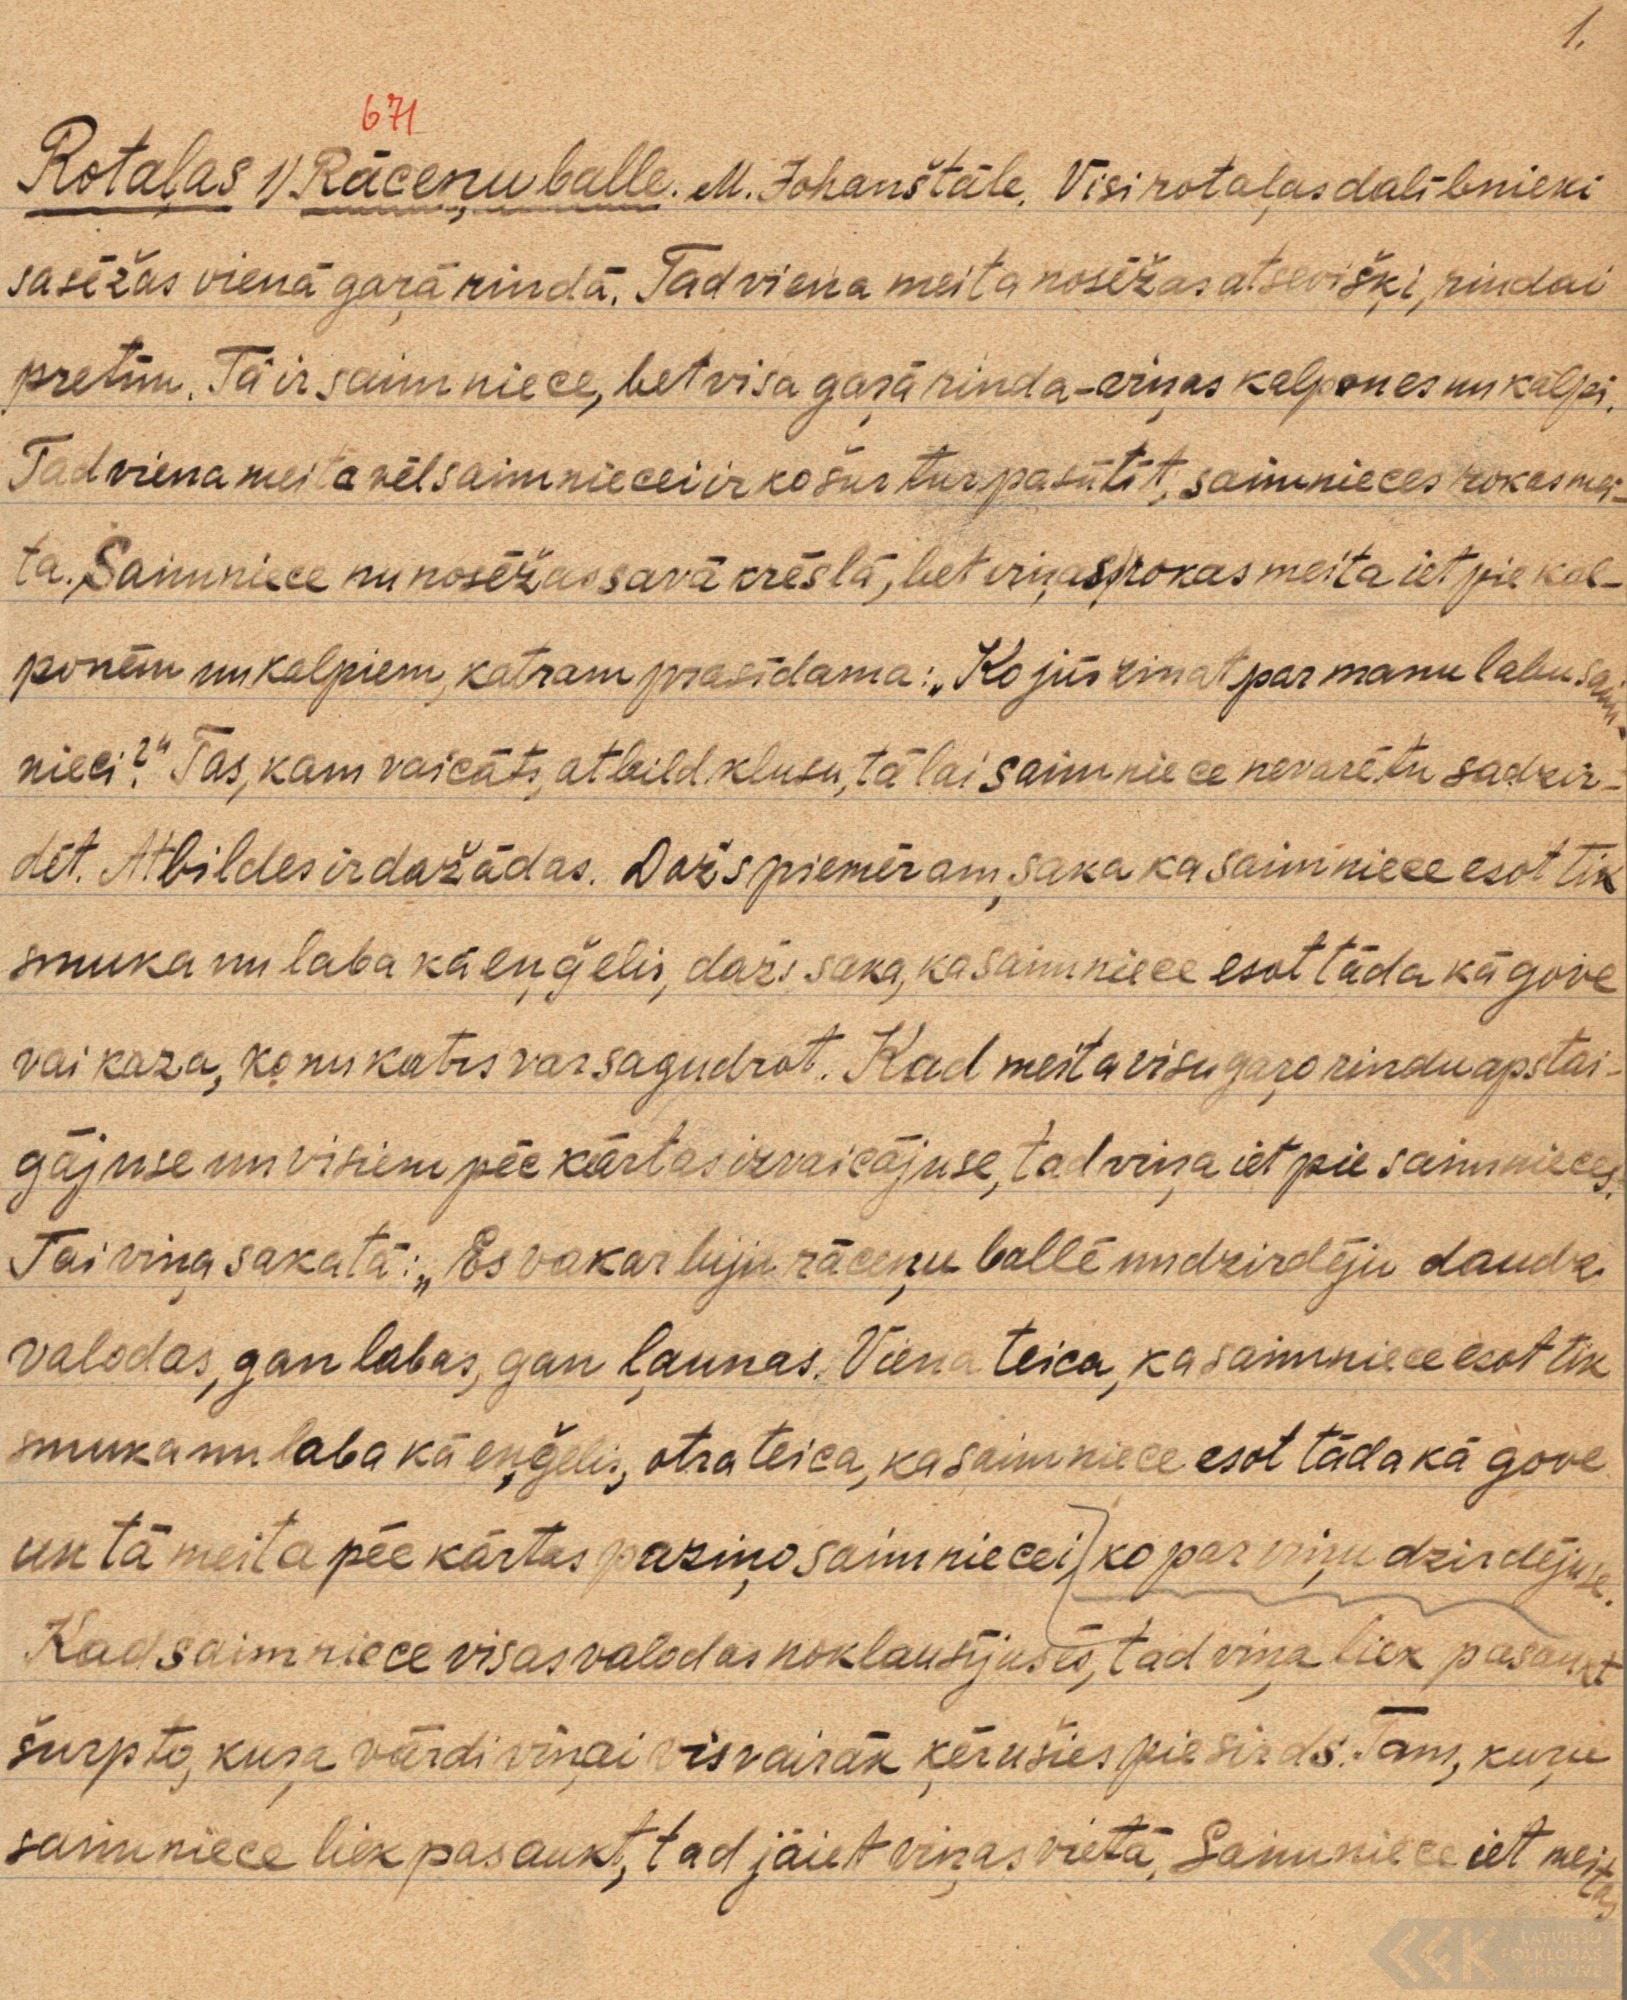 1.
671
Rotaļas 1) Rāceņu balle. M. Johanštāle. Visi rotaļas dalībnieki
sasēžas vienā gaŗā rindā. Tad viena meita nosēžas atsevišķi, rindai
pretim. Tā ir saimniece, bet visa gaŗā rinda - viņas kalpones un kalpi.
Tad viena meita vēl saimniecei ir ko šur tur pasūtīt, saimnieces rokas mei-
ta. Saimniece nu nosēžas savā krēslā, bet viņas rokas meita iet pie kal-
ponēm un kalpiem, katram prasīdama: „Ko jūs zinat par manu labu saim-
nieci?" Tas, kam vaicāts, atbild klusu, tā lai saimniece nevarētu sadzir-
dēt. Atbildes ir dažādas. Dažs piemēram, saka ka saimniece esot tik
smuka un laba kā eņģelis, dažs saka, ka saimniece esot tāda kā gove
vai kaza, ko nu katrs var sagudrot. Kad meita visu gaŗo rindu apstai-
gājuse un visiem pēc kārtas izvaicājuse, tad viņa iet pie saimnieces.
Tai viņa saka tā: „Es vakar biju rāceņu ballē un dzirdēju daudz
valodas, gan labas, gan ļaunas. Viena teica, ka saimniece esot tik
smuka un laba kā eņģelis, otra teica, ka saimniece esot tāda kā gove
un tā meita pēc kārtas paziņo saimniecei, ko par viņu dzirdējuse.
Kad saimniece visas valodas noklausījusēs, tad viņa liek pasaukt
šurp to, kuŗa vārdi viņai visvairāk ķērušies pie sirds. Tam, kuŗu
saimniece liek pasaukt, tad jāiet viņas vietā. Saimniece iet meitas
LATVIEŠU
FOLKLORAS
KRĀTUVE